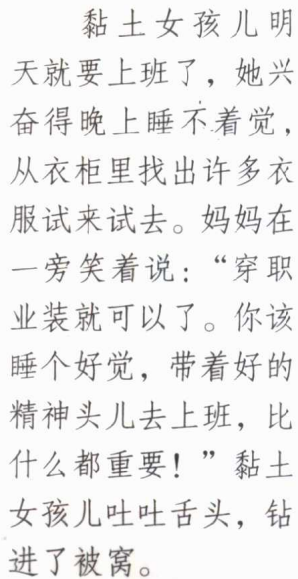 黏土女孩儿明
天就要上班了，她兴
奋得晚上睡不着觉，
从衣柜里找出许多衣
服试来试去。妈妈在
一旁笑着说：“穿职
业装就可以了。你该
睡个好觉，带着好的
精神头儿去上班，比
什么都重要！”黏土
女孩儿吐吐舌头，钻
进了被窝。